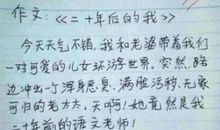 作文：《二十年后的我》
今天天气不错，我和老婆带着我们
一对可爱的儿女环游世界，突然，路
边冲出一个浑身恶臭、满脸污秽、无家
可归的老太太，天啊！她竟然是我
二十年前的语文老师！